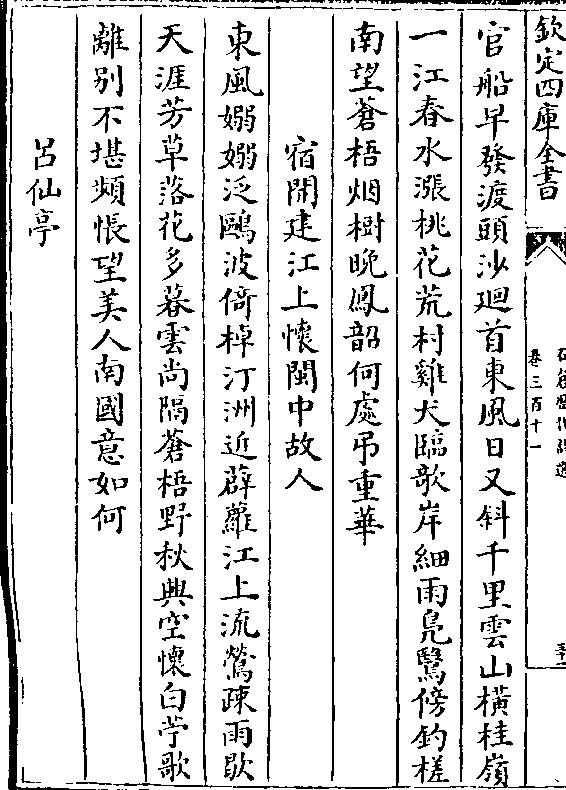 欽定四庫全書
卷三百十一
官船早發渡頭沙廻首東風日又斜千里雲山横桂嶺
一江春水漲桃花荒村雞犬臨欹岸細雨鳧鷖傍釣槎
南望蒼梧烟樹晩鳳韶何處弔重華
宿開建江上懷閩中故人
東風嫋嫋泛鷗波倚棹汀洲近薜蘿江上流鶯疎雨歇
天涯芳草落花多暮雲尚隔蒼梧野秋興空懷白苧歌
離别不堪頻悵望美人南國意如何
吕仙亭